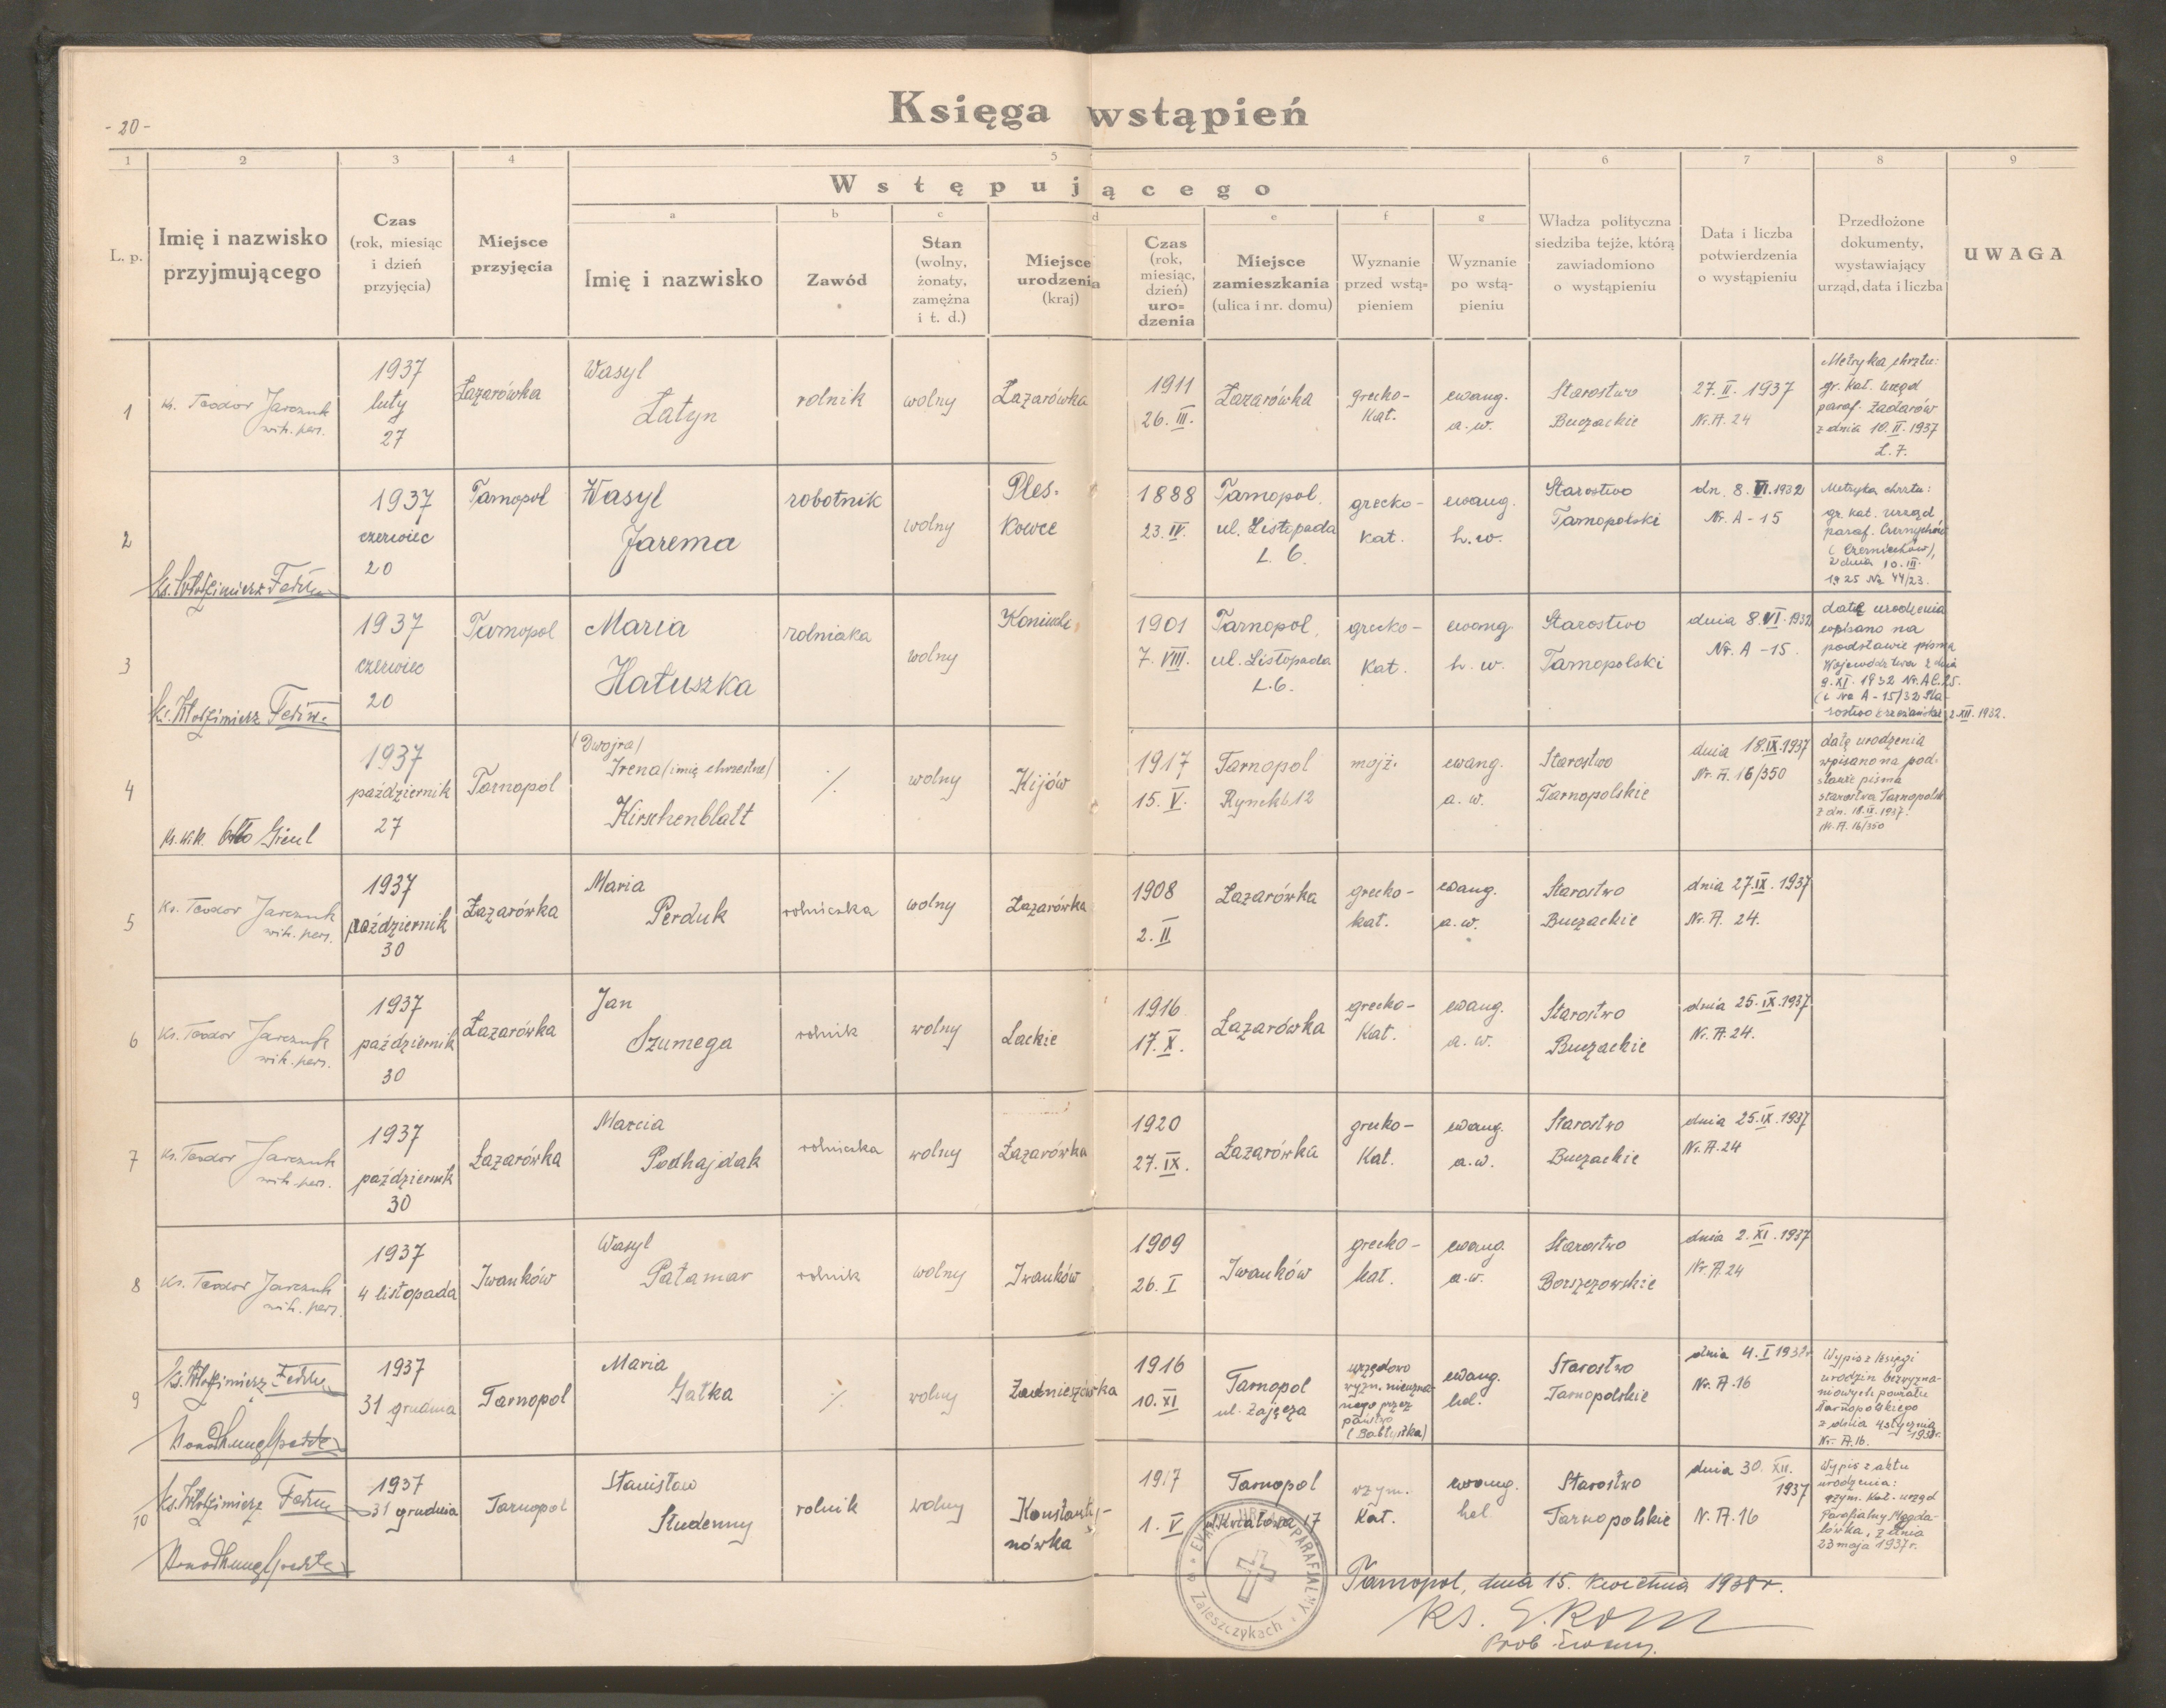 - 20 -
Księga wstąpień
1 2 3 4 5 6 7 8 9
Wstępującego
a b c d e f g
L. p.
Imię i nazwisko
przyjmującego
Czas
(rok, miesiąc
i dzień
przyjęcia)
Miejsce
przyjęcia
Imię i nazwisko
Zawód
Stan
(wolny,
żonaty,
zamężna
i t. d.)
Miejsce
urodzenia
(kraj)
Czas
(rok,
miesiąc,
dzień)
uro-
dzenia
Miejsce
zamieszkania
(ulica i nr. domu)
Wyznanie
przed wstą-
pieniem
Wyznanie
po wstą-
pieniu
Władza polityczna
siedziba tejże, którą
zawiadomiono
o wystąpieniu
Data i liczba
potwierdzenia
o wystąpieniu
Przedłożone
dokumenty,
wystawiający
urząd, data i liczba
UWAGA
1
Ks. Teodor Jarczuk
wik. pers.
1937
luty
27
Łazarówka
Wasyl
Łatyn
rolnik
wolny
Łazarówka
1911
26. III.
Łazarówka
grecko-
Kat.
ewang.
a. w.
Starostwo
Buczackie
27. II. 1937
Nr. A. 24
Metryka chrztu:
gr. kat. urząd
paraf. Zadarów
z dnia 10. II. 1937
L. 7.
2
Ks. Włodzimierz
1937
czerwiec
20
Tarnopol
Wasyl
Jarema
robotnik
wolny
Ples-
kowce
1888
23. IV.
Tarnopol.
ul. Listopada
L. 6.
grecko-
kat.
ewang.
h. w.
Starostwo
Tarnopolski
dn. 8. VI. 1932
Nr. A - 15
Metryka chrztu:
gr. kat. urząd
paraf.
(Czerniechów),
z dnia 10. III.
1925 No 44/23.
3
Ks. Włodzimierz
1937
czerwiec
20
Tarnopol
Maria
Hatuszka
rolniaka
wolny
1901
7. VIII.
Tarnopol,
ul. Listopada
L. 6.
grecko-
Kat.
ewang.
h. w.
Starostwo
Tarnopolski
dnia 8. VI. 1932
Nr. A - 15.
datę urodzenia
wpisano na
podstawie pisma
Województwa z dnia
9. XI. 1932
(i No A - 15/32 Sta-
rostwo 2. XII. 1932.
4
Ks. wik. Otto
1937
październik
27
Tarnopol
/Dwojra/
Irena /imię chrzestne/
Kirschenblatt
./.
wolny
Kijów
1917
15. V.
Tarnopol
Rynek 12
mojż.
ewang.
a. w.
Starostwo
Tarnopolskie
dnia 18. IX. 1937
Nr. A. 16/350
datę urodzenia
wpisano na pod-
stawie pisma
starostwa Tarnopolsk
z dn. 18. IX. 1937.
Nr. A. 16/350
5
Ks. Teodor Jarczuk
wik. pers.
1937
październik
30
Łazarówka
Maria
Perduk
rolniczka
wolny
Łazarówka
1908
2. II
Łazarówka
grecko-
kat.
ewang.
a. w.
Starostwo
Buczackie
dnia 27. IX. 1937
Nr. A. 24.
6
Ks. Teodor Jarczuk
wik. pers.
1937
październik
30
Łazarówka
Jan
Szumega
rolnik
wolny
Lackie
1916
17. X.
Łazarówka
grecko-
Kat.
ewang.
a. w.
Starostwo
Buczackie
dnia 25. IX. 1937
Nr. A. 24.
7
Ks. Teodor Jarczuk
wik. pers.
1937
październik
30
Łazarówka
Marcia
Podhajdak
rolniczka
wolny
Łazarówka
1920
27. IX.
Łazarówka
grecko-
Kat.
ewang.
a. w.
Starostwo
Buczackie
dnia 25. IX. 1937
Nr. A. 24
8
Ks. Teodor Jarczuk
wik. pers.
1937
4 listopada
Iwanków
Wasyl
Patamar
rolnik
wolny
Iwanków
1909
26. I
Iwanków
grecko-
kat.
ewang.
a. w.
Starostwo
Borszczowskie
dnia 2. XI. 1937
Nr. A. 24
9
Ks. Włodzimierz
1937
31 grudnia
Tarnopol
Maria
Gałka
./.
wolny
1916
10. XI
Tarnopol
ul. Zajęcza
urzędowo
wyzn. nieuzna-
nego przez
państwo
(Babtystka)
ewang.
hel.
Starostwo
Tarnopolskie
dnia 4. I 1938r
Nr. A. 16
Wypis z księgi
urodzin bezwyzna-
niowych powiatu
tarnopolskiego
z dnia 4 stycznia
1938r.
Nr. A. 16.
10
Ks. Włodzimierz
1937
31 grudnia
Tarnopol
Stanisław
Studenny
rolnik
wolny
Konstanty-
nówka
1917
1. V
Tarnopol
ul. Kwiatowa 17
rzym.
Kat.
ewang.
hel.
Starostwo
Tarnopolskie
dnia 30. XII.
1937
N. A. 16
Wypis z aktu
urodzenia:
rzym. Kat. urząd
Parafialny Magda-
lówka, z dnia
23 maja 1937 r.
EWANG. URZĄD PARAFIALNY
Zaleszczykach
Tarnopol, dnia 15. kwietnia 1938 r.
Ks.